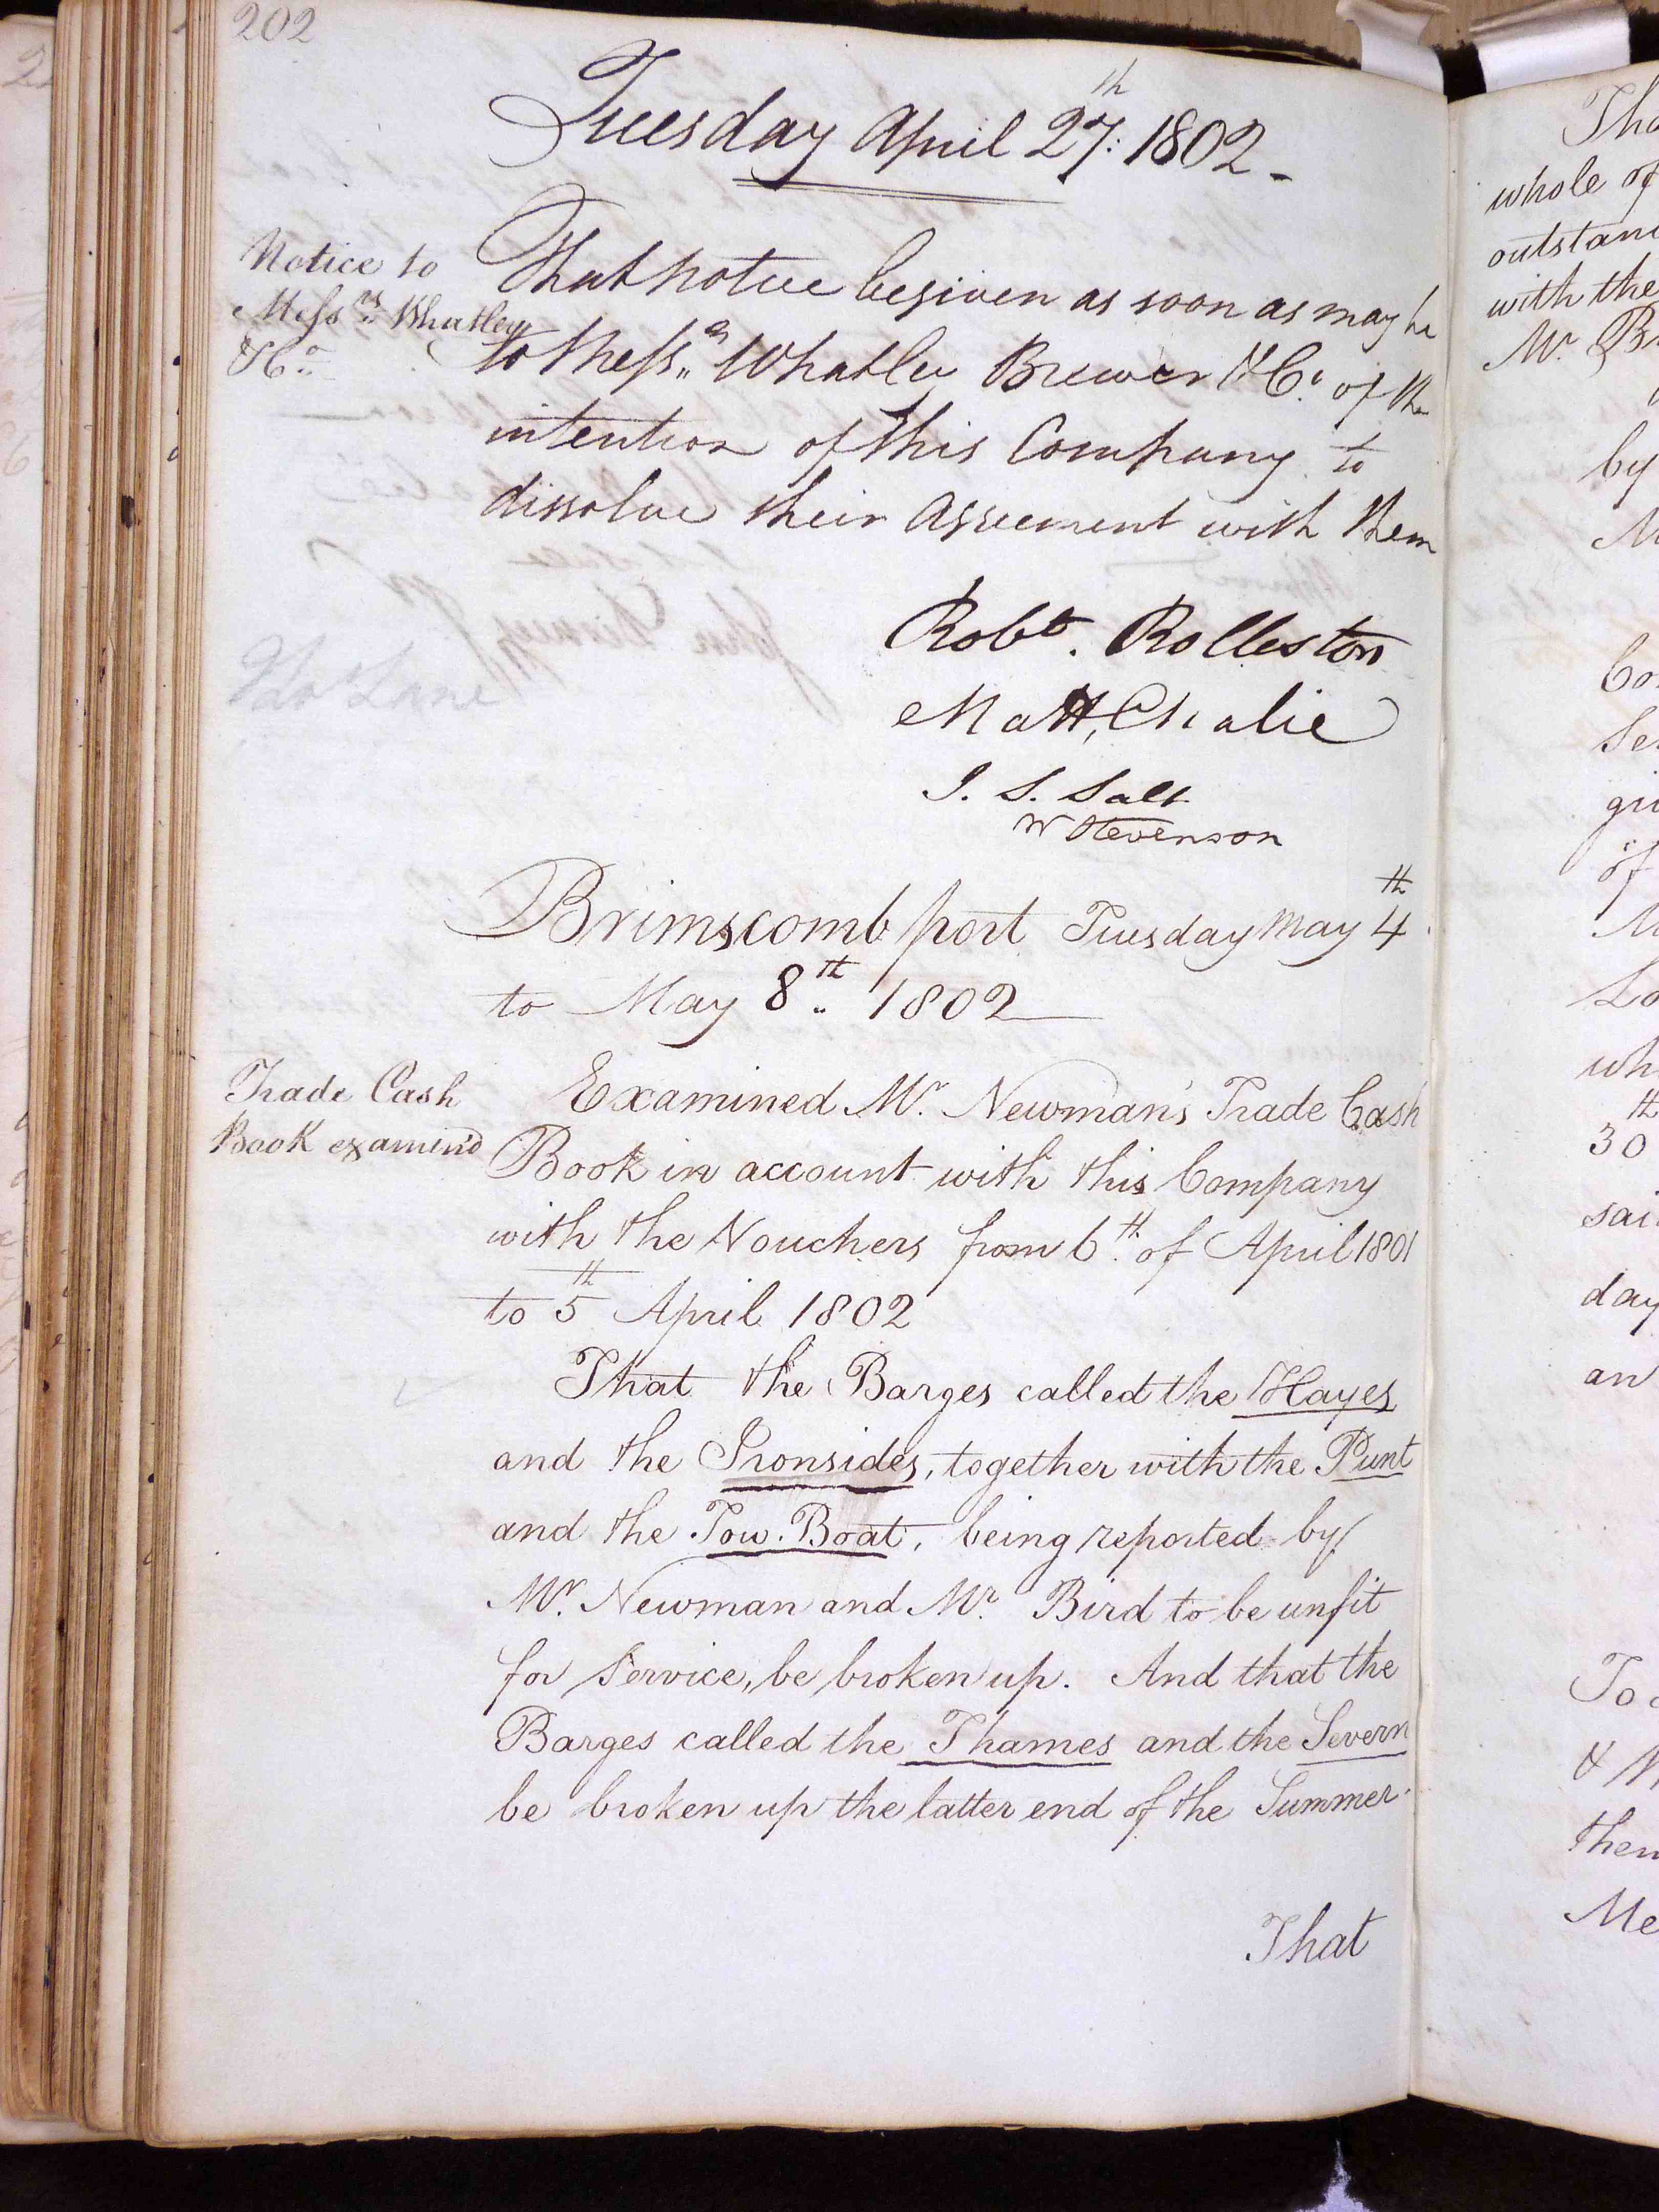 202
Tuesday April 27th: 1802 -
Notice to
Messrs Whatley
& Co
That notice be given as soon as may be
to Messrs Whatley Brewer & Co. of the
intention of this Company to
dissolve their Agreement with them
Robt. Rolleston
Matt, Chalie
J. S. Salt
W Stevenson
Brimscomb port Tuesday May 4th
to May 8th 1802
Trade Cash
Book examin'd
Examined Mr. Newman's Trade Cash
Book in account with this Company
with the Vouchers from 6th of April 1801
to 5th April 1802
That the Barges called the Hayes
and the Ironsides, together with the Punt
and the Tow. Boat, being reported by
Mr. Newman and Mr. Bird to be unfit
for Service, be broken up. And that the
Barges called the Thames and the Severn
be broken up the latter end of the Summer.
That
whole of
with the
Mr.
by
of
30th
an